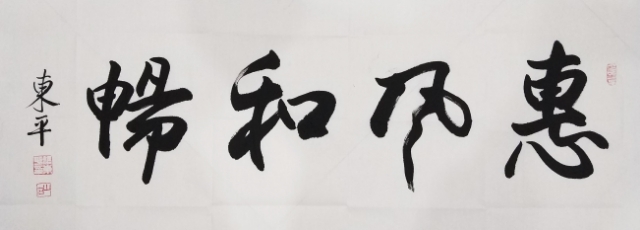 惠风和暢
東平